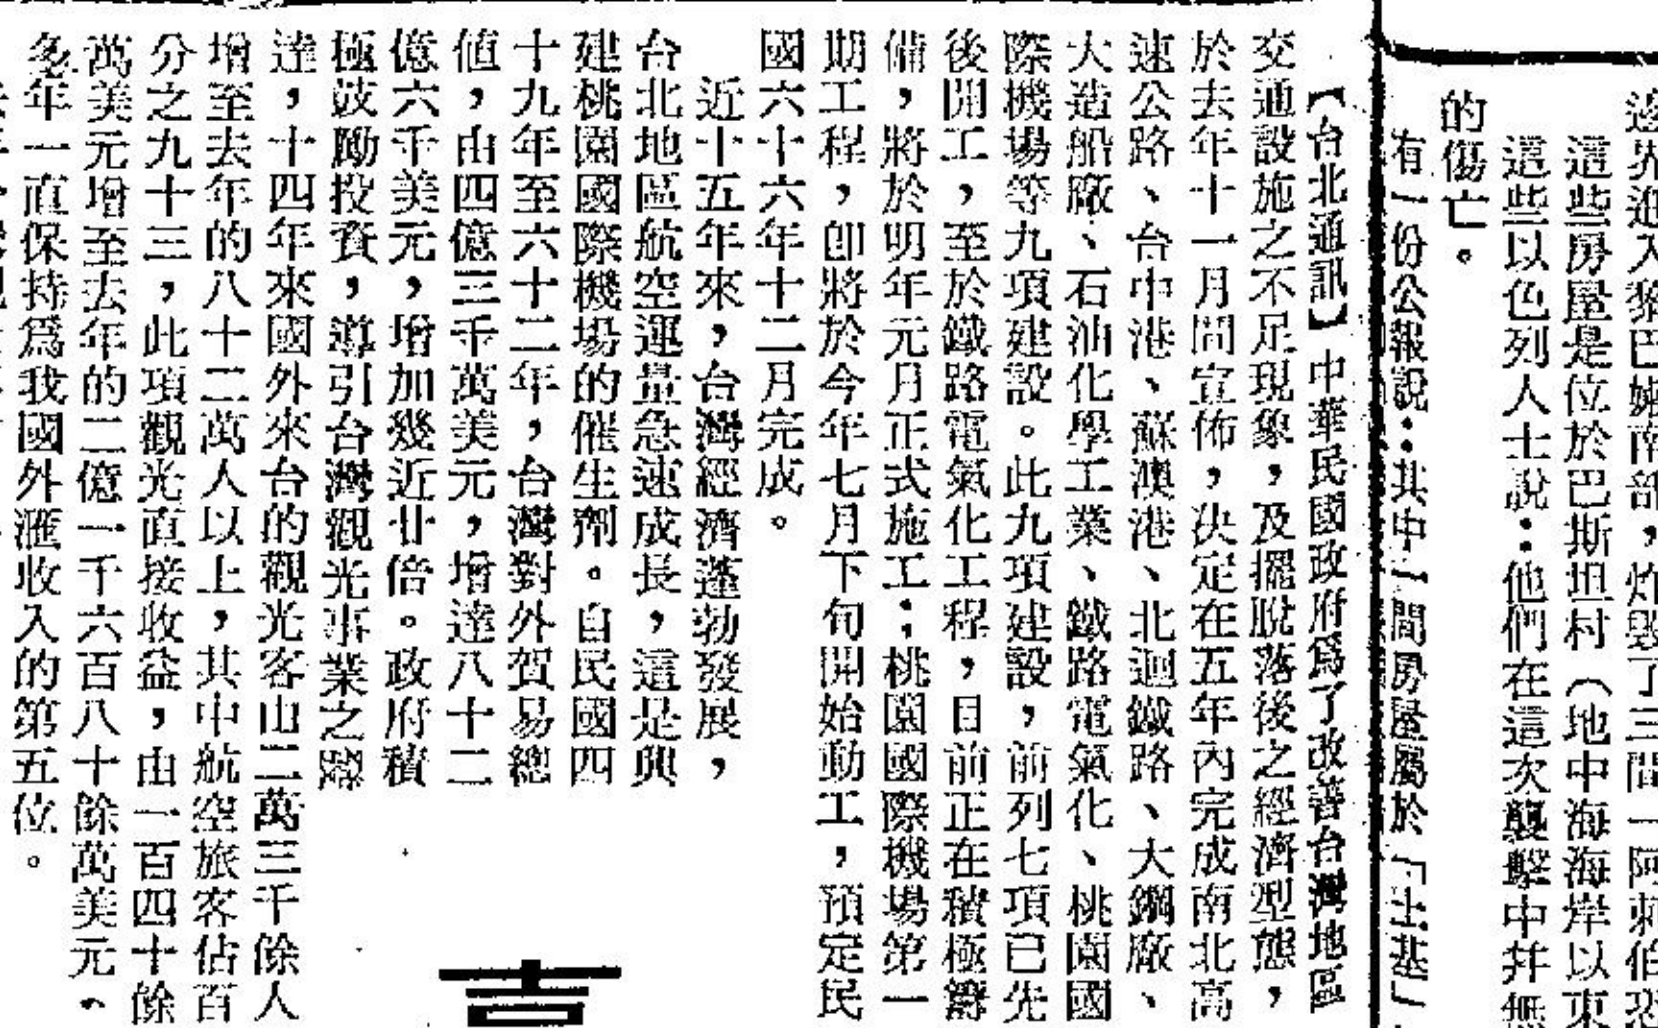 邊界進入黎巴嫩南部，炸毀了三間一阿剌伯恐
這些房屋是位於巴斯坦村（地中海海岸以東
這些以色列人士說：他們在這次襲擊中幷無
的傷亡。
有一份公報說：其中一間房屋屬於「土基」
【台北通訊】中華民國政府爲了改善台灣地區
交通設施之不足現象，及擺脫落後之經濟型態，
於去年十一月間宣佈，決定在五年內完成南北高
速公路、台中港、蘇澳港、北迴鐵路、大鋼廠、
大造船廠、石油化學工業、鐵路電氣化、桃園國
際機場等九項建設。此九項建設，前列七項已先
後開工，至於鐵路電氣化工程，目前正在積極籌
備，將於明年元月正式施工；桃園國際機場第一
期工程，卽將於今年七月下旬開始動工，預定民
國六十六年十二月完成。
近十五年來，台灣經濟蓬勃發展，
台北地區航空運量急速成長，這是興
建桃園國際機場的催生劑。自民國四
十九年至六十二年，台灣對外貿易總
値，由四億三千萬美元，增達八十二
億六千美元，增加幾近廿倍。政府積
極鼓勵投資，導引台灣觀光事業之發
達，十四年來國外來台的觀光客由二萬三千餘人
增至去年的八十二萬人以上，其中航空旅客佔百
分之九十三，此項觀光直接收益，由一百四十餘
萬美元增至去年的二億一千六百八十餘萬美元，
多年一直保持爲我國外滙收入的第五位。